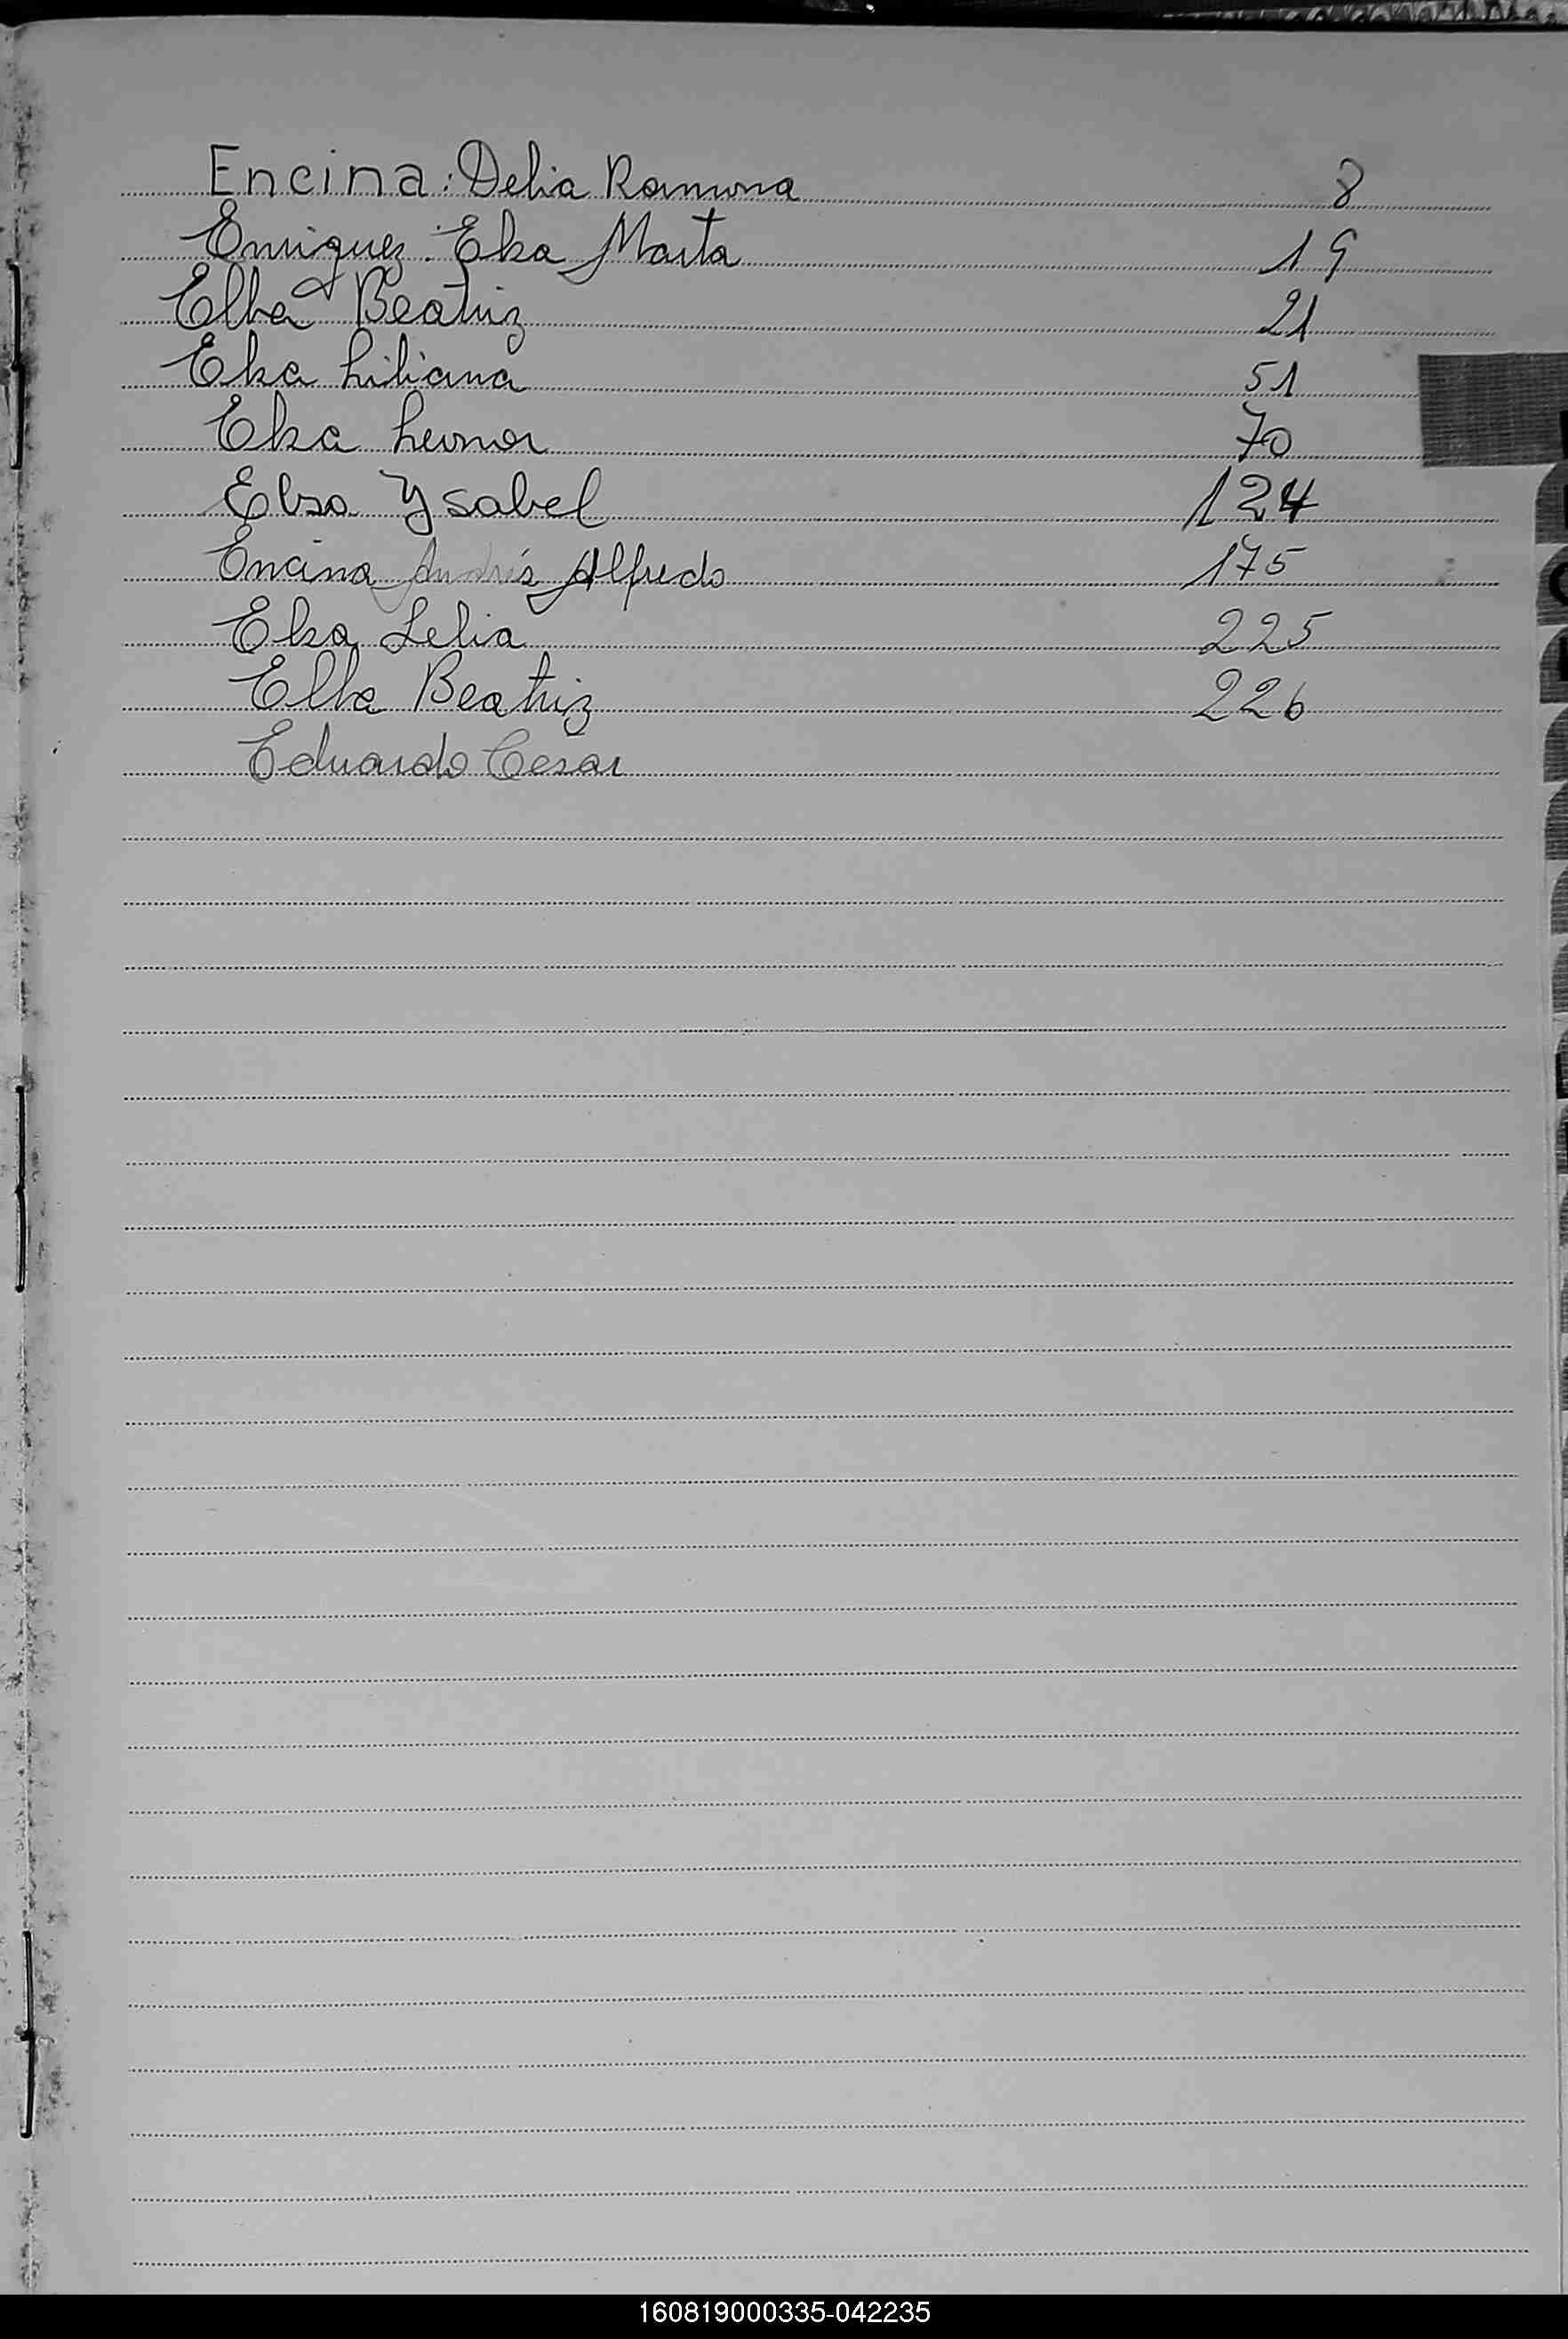 Encina: Delia Ramona 8
Enriquez. Elsa Marta 19
Elba Beatriz 21
Elsa Liliana 51
Elsa Leonor 70
Elsa Ysabel 124
Encina Andrés Alfredo 175
Elsa Lelia 225
Elba Beatriz 226
Eduardo Cesar
160819000335-042235